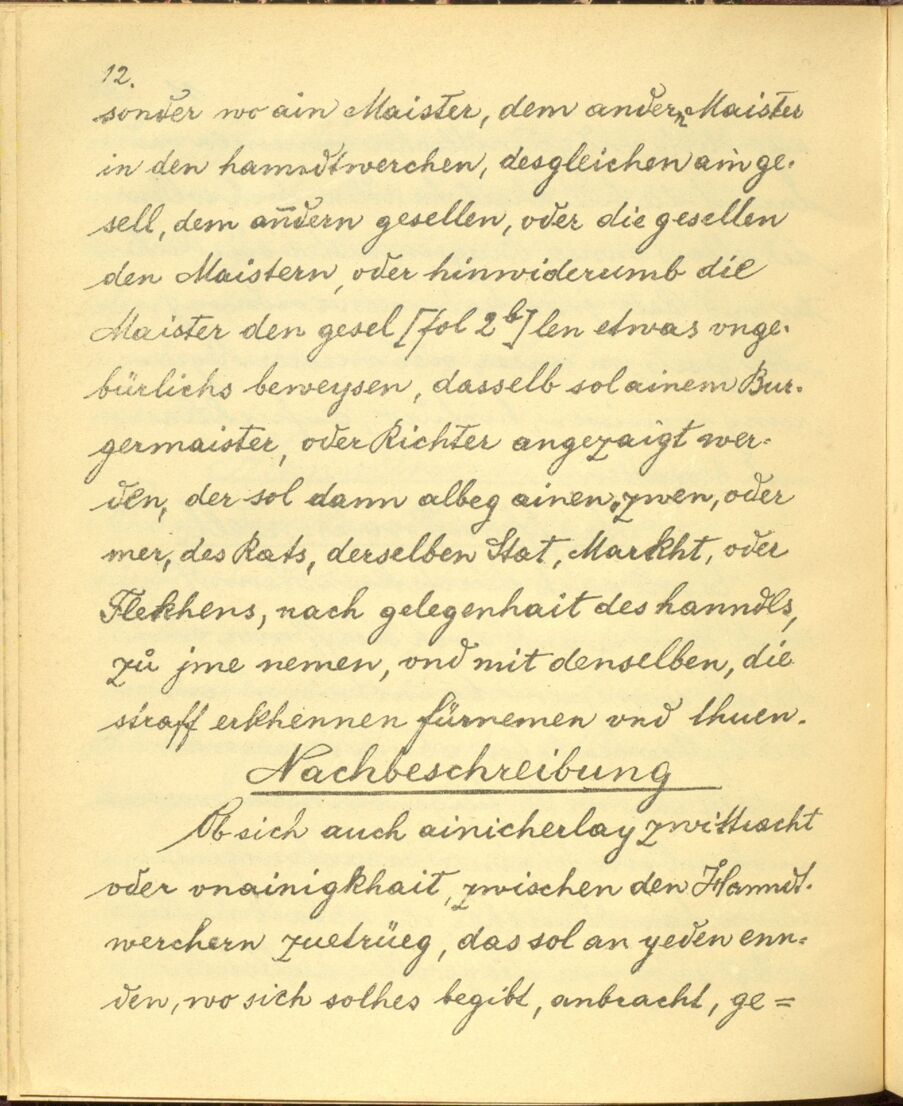 12.
sonder wo ain Maister, dem andern Maister
in den hanndtwerchen, desgleichen ain ge-
sell, dem anndern gesellen, oder die gesellen
den Maistern, oder hinwiderumb die
Maister den gesel [fol 2b] len etwas vnge-
bürlichs beweysen, dasselb sol ainem Bur-
germaister, oder Richter angezaigt wer-
den, der sol dann albeg ainen, zwen, oder
mer, des Rats, derselben Stat, Markht, oder
Flekhens, nach gelegenhait des hanndls,
zů jme nemen, vnd mit denselben, die
straff erkhennen fürnemen vnd thuen.
Nachbeschreibung
Ob sich auch ainicherlay zwittracht
oder vnainigkhait, zwischen den Hanndt-
werchern zuetrüeg, das sol an yeden enn-
den, wo sich solhes begibt, anbracht, ge=